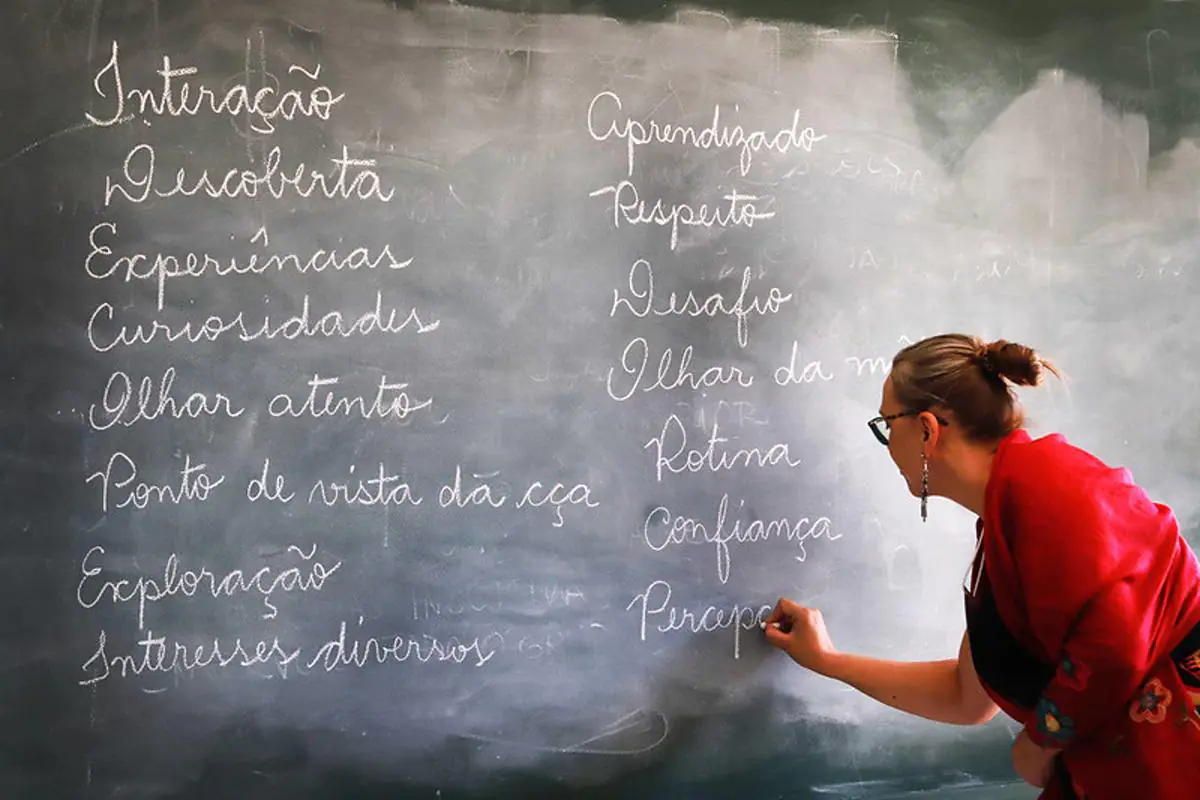 Interação
Descoberta
Experiências
Curiosidades
Olhar atento
Ponto de vista da cça
Exploração
Interesses diversos
Aprendizado
Respeito
Desafio
Olhar da
Rotina
Confiança